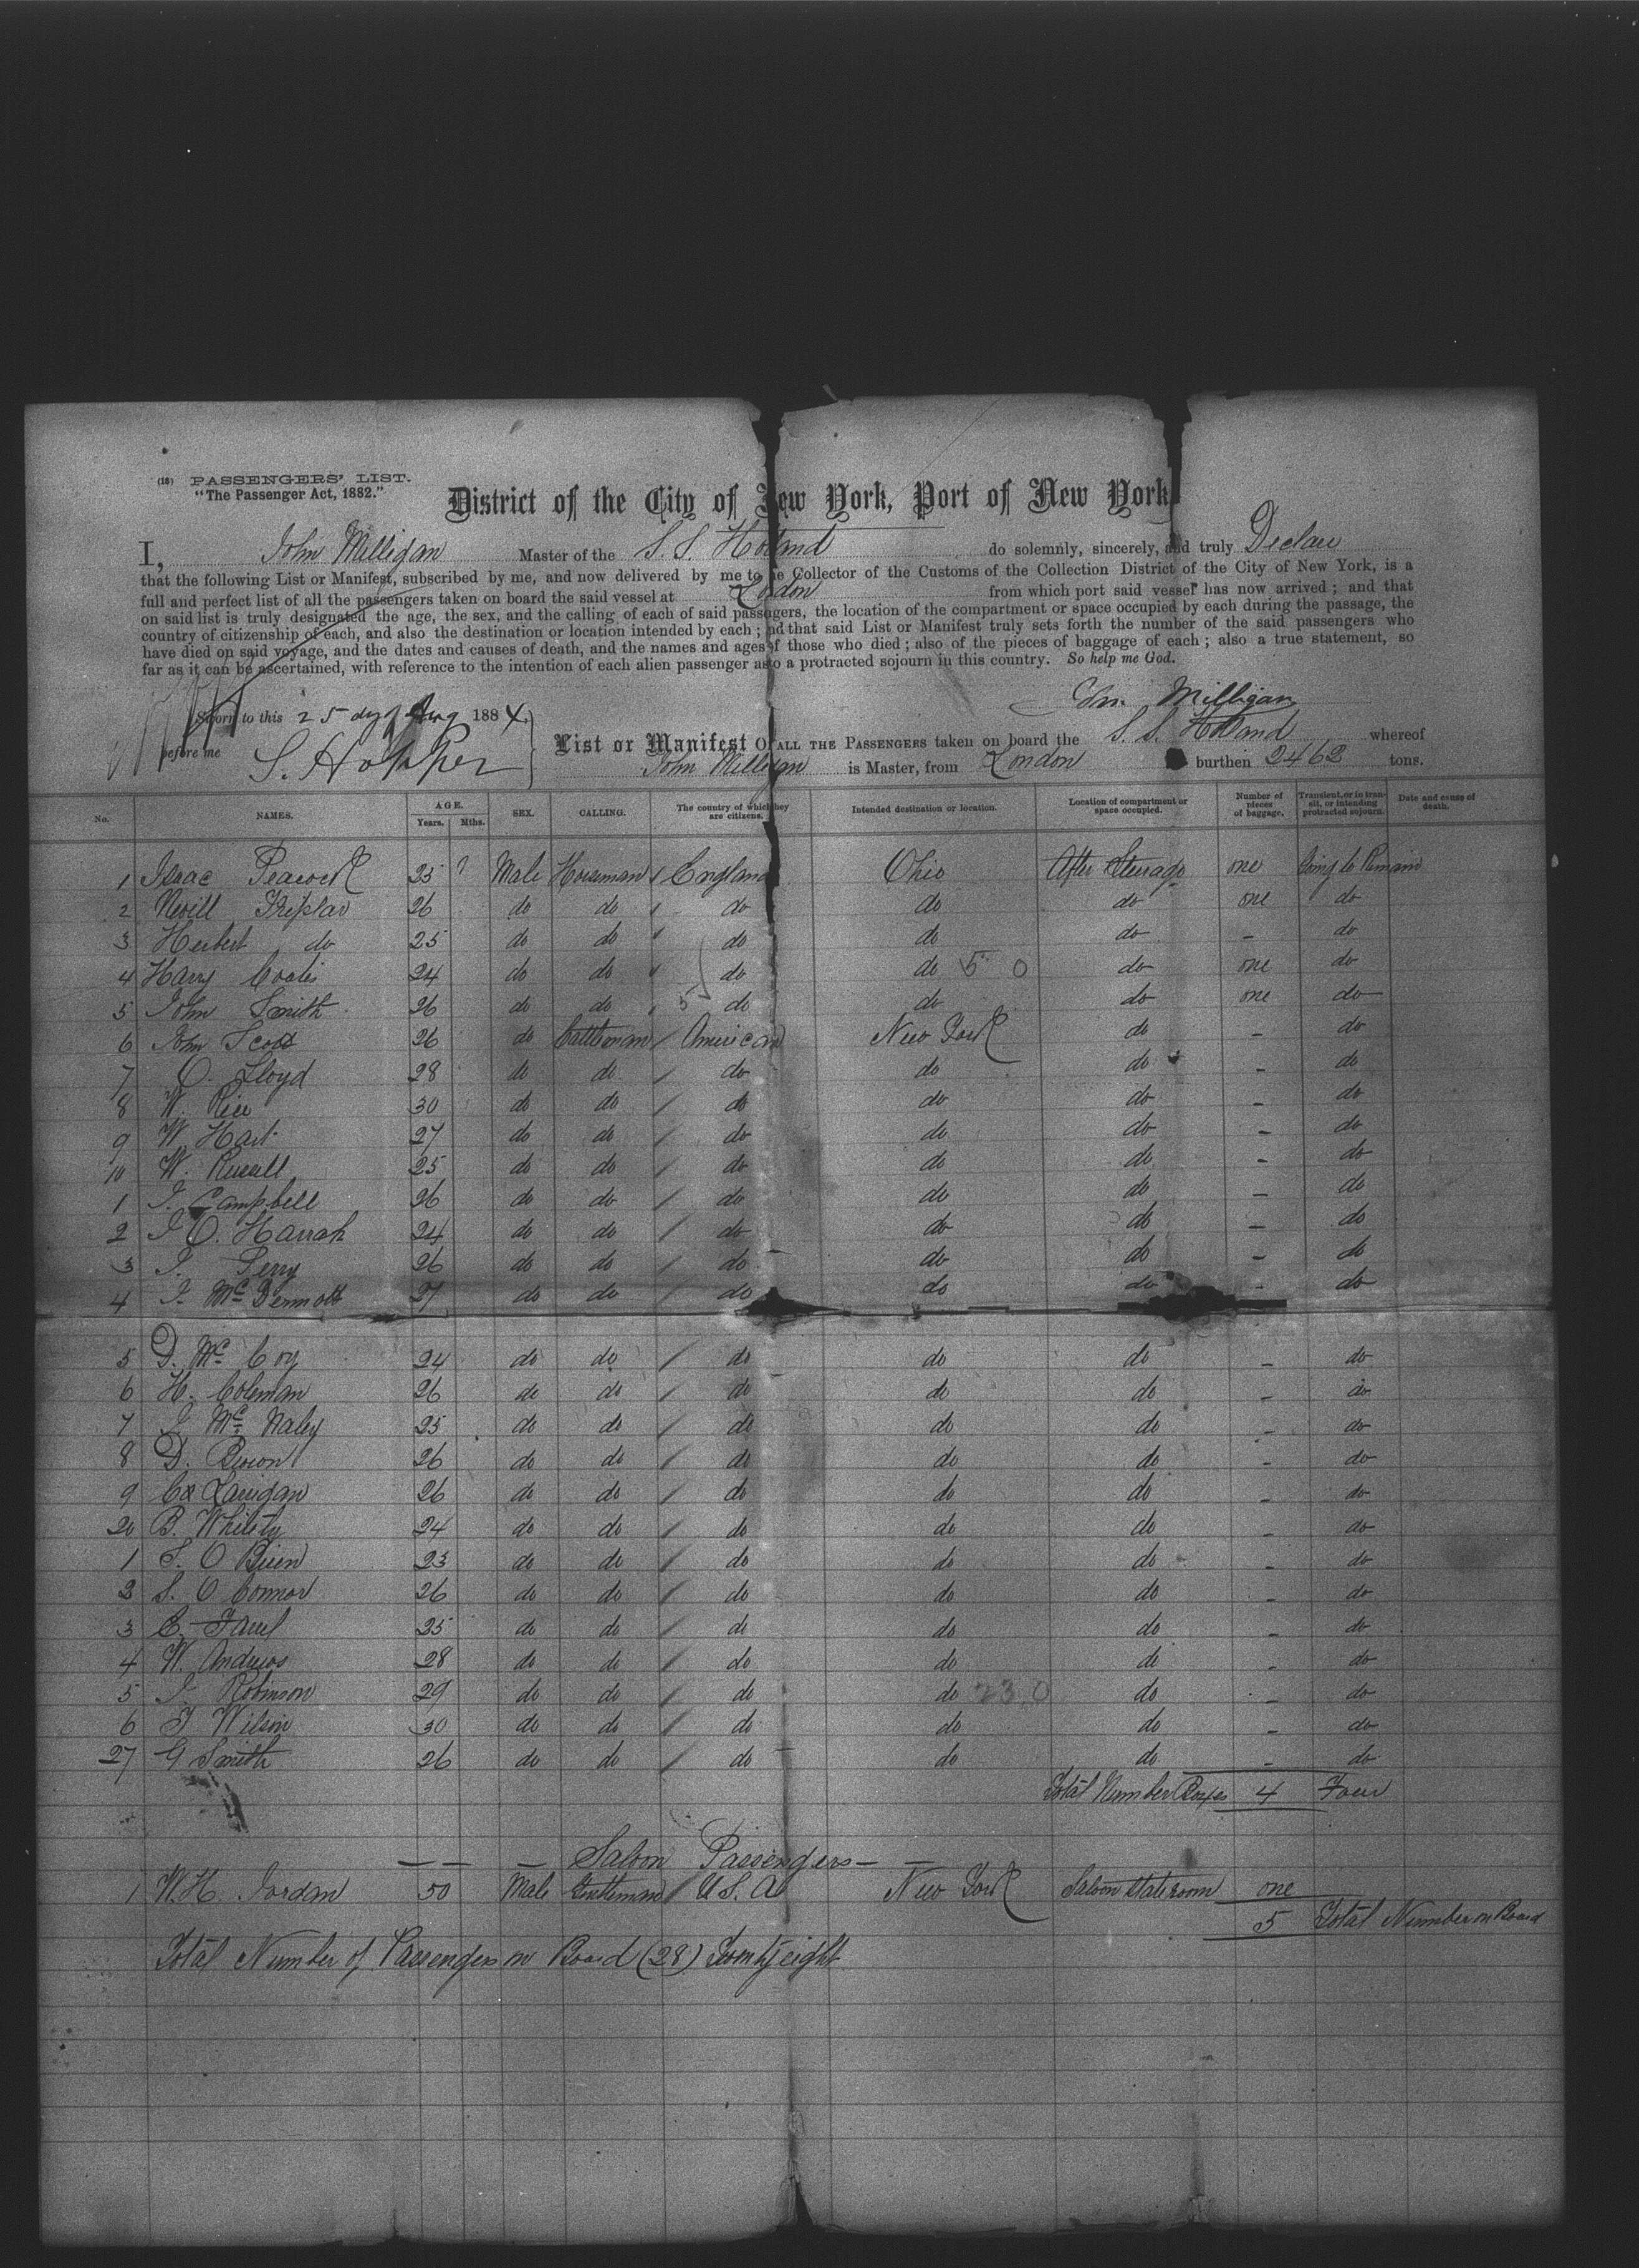 (18) PASSENGERS' LIST.
"The Passenger Act, 1882."
District of the City of New York, Port of New York
I, John Milligan Master of the S. S. Holland do solemnly, sincerely, and truly Declare
that the following List or Manifest, subscribed by me, and now delivered by me to the Collector of the Customs of the Collection District of the City of New York, is a
full and perfect list of all the passengers taken on board the said vessel at London from which port said vessel has now arrived; and that
on said list is truly designated the age, the sex, and the calling of each of said passengers, the location of the compartment or space occupied by each during the passage, the
country of citizenship of each, and also the destination or location intended by each; and that said List or Manifest truly sets forth the number of the said passengers who
have died on said voyage, and the dates and causes of death, and the names and ages of those who died; also of the pieces of baggage of each; also a true statement, so
far as it can be ascertained, with reference to the intention of each alien passenger as to a protracted sojourn in this country. So help me God.
Jn. Milligan
Sworn to this 25 dy of Aug 1884.
before me S. Hopper
List or Manifest OF ALL THE PASSENGERS taken on board the S. S. Holland whereof
John Milligan is Master, from London burthen 2462 tons.
No. NAMES. AGE. Years. Mths. SEX. CALLING. The country of which they are citizens. Intended destination or location. Location of compartment or space occupied. Number of pieces of baggage. Transient, or in transit, or intending protracted sojourn. Date and cause of death.
1 Isaac Peacock 25 Male Horseman England Ohio After Steerage one Going to Remain
2 Nevill 26 do do do do do one do
3 Herbert do 25 do do do do do - do
4 Harry Coates 24 do do do do 5 0 do one do
5 John Smith 26 do do 5 do do do one do
6 John Scott 26 do Cattleman American New York do - do
7 O. Lloyd 28 do do do do do - do
8 W. Rice 30 do do do do do - do
9 W. Hart 27 do do do do do - do
10 W. Russell 25 do do do do do - do
1 J. Campbell 26 do do do do do - do
2 J O. Harrah 24 do do do do do - do
3 J. Perry 26 do do do do do - do
4 J. McDermott 27 do do do do do - do
5 D. Mc Coy 24 do do do do do - do
6 H. Coleman 26 do do do do do - do
7 J. Mc Naley 25 do do do do do - do
8 D. Brown 26 do do do do do - do
9 Lanigan 26 do do do do do - do
20 B. Whitely 24 do do do do do - do
1 S. O Brien 23 do do do do do - do
2 S. O Connor 26 do do do do do - do
3 C. Farrel 25 do do do do do - do
4 W. Andrews 28 do do do do do - do
5 J. Robinson 29 do do do do 23,0 do - do
6 J Wilson 30 do do do do do - do
27 G Smith 26 do do do do do - do
Total Number Boxes 4 Four
Saloon Passengers
1 W. H. Jordan 50 Male Gentleman U. S. A New York Saloon Stateroom one
5 Total Number on Board
Total Number of Passengers on Board (28) Twenty eight